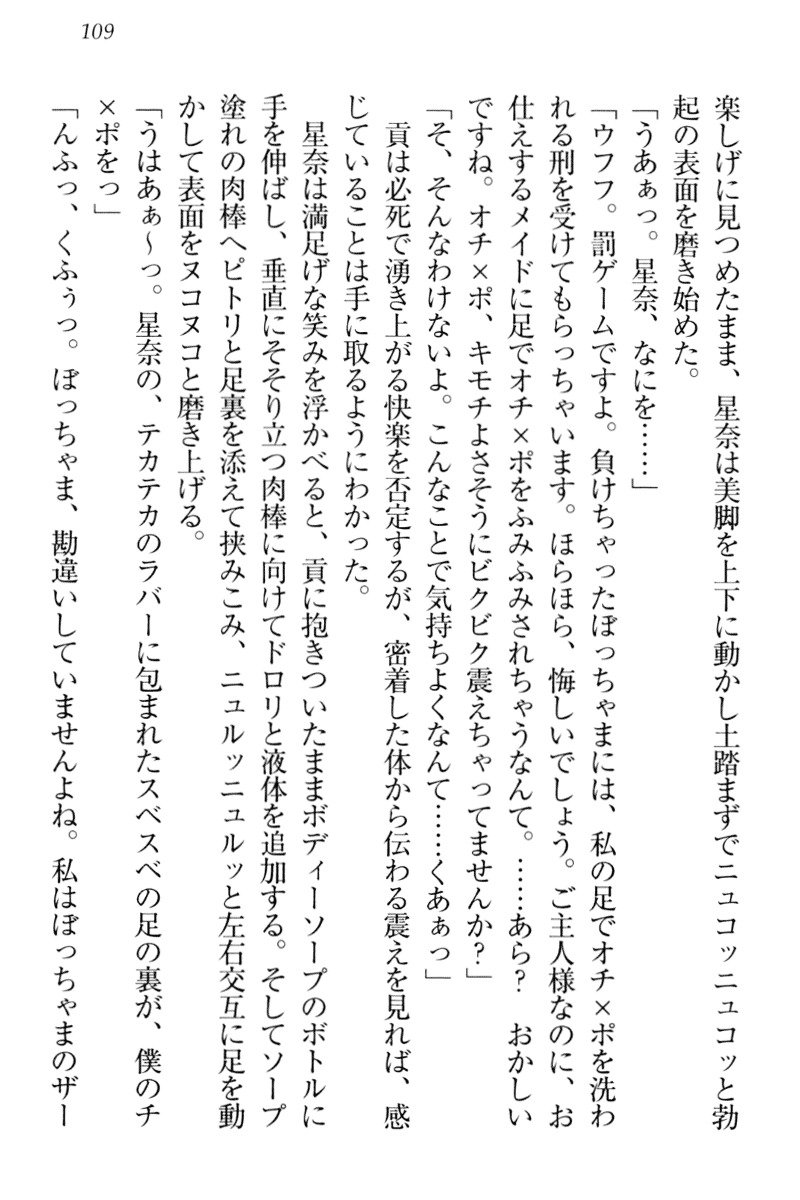 109
楽しげに見つめたまま、星奈は美脚を上下に動かし土踏まずでニュコッニュコッと勃
起の表面を磨き始めた。
「うあぁっ。星奈、なにを……」
「ウフフ。罰ゲームですよ。負けちゃったぼっちゃまには、私の足でオチ×ポを洗わ
れる刑を受けてもらっちゃいます。ほらほら、悔しいでしょう。ご主人様なのに、お
仕えするメイドに足でオチ×ポをふみふみされちゃうなんて。……あら?　おかしい
ですね。オチ×ポ、キモチよさそうにビクビク震えちゃってませんか?」
「そ、そんなわけないよ。こんなことで気持ちよくなんて……くあぁっ」
　貢は必死で湧き上がる快楽を否定するが、密着した体から伝わる震えを見れば、感
じていることは手に取るようにわかった。
　星奈は満足げな笑みを浮かべると、貢に抱きついたままボディーソープのボトルに
手を伸ばし、垂直にそそり立つ肉棒に向けてドロリと液体を追加する。そしてソープ
塗れの肉棒へピトリと足裏を添えて挟みこみ、ニュルッニュルッと左右交互に足を動
かして表面をヌコヌコと磨き上げる。
「うはあぁ～っ。星奈の、テカテカのラバーに包まれたスベスベの足の裏が、僕のチ
×ポをっ」
「んふっ、くふぅっ。ぼっちゃま、勘違いしていませんよね。私はぼっちゃまのザー